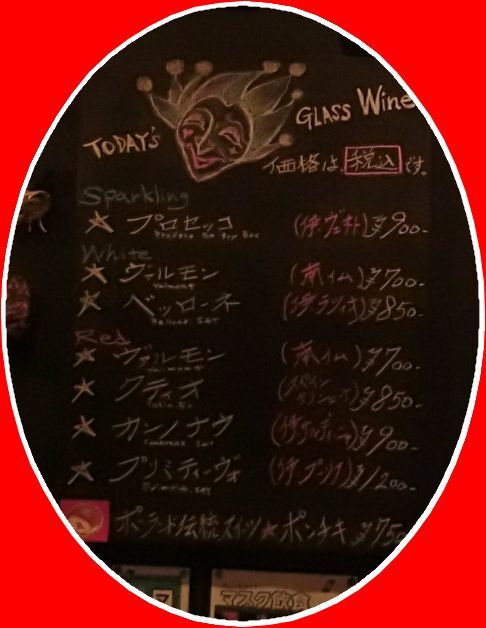 TODAY's GLASS Wine
価格は、税込です。
Sparkling
★ プロセッコ (伊ヴェネト) ¥900-
White
★ ヴァルモン (南仏) ¥700-
Valmont
★ ベッローネ ¥850-
Bellone IGT
Red
★ ヴァルモン (南仏) ¥700-
Valmont
★ クティオ ¥850-
★ カンノナウ ¥900-
★ プリミティーヴォ (伊プーリア) ¥1200-
ポーランド伝統スイーツ★ポンチキ ¥750
マスク飲食